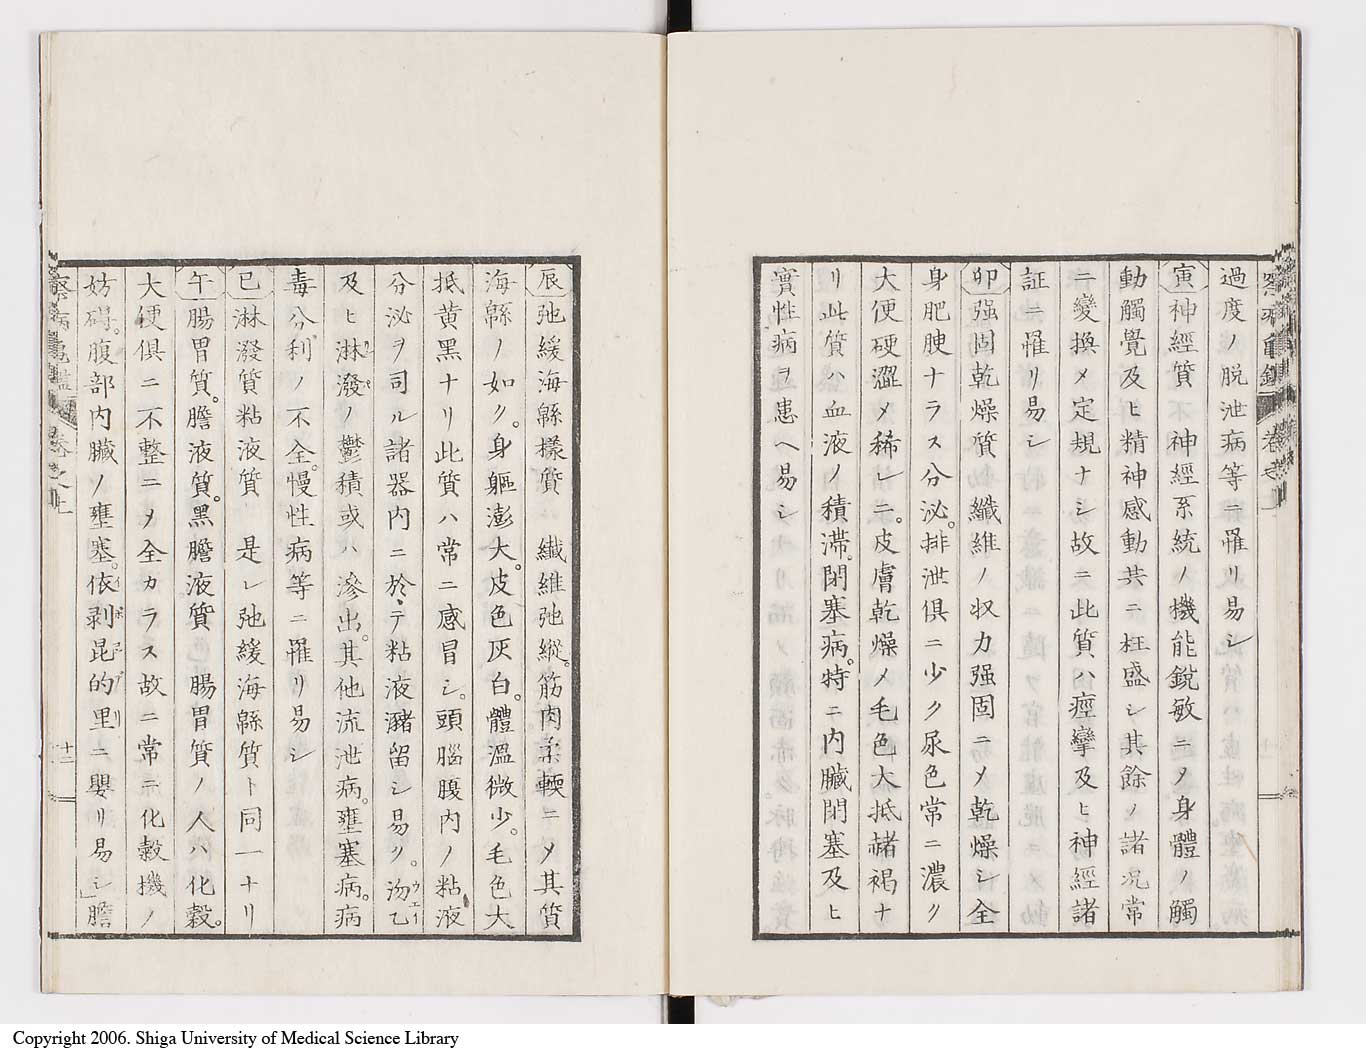 過度ノ脱泄病等ニ罹リ易シ
寅神經質 神經系統ノ機能銳敏ニ〆身體ノ觸
動觸覺及ヒ精神感動共ニ枉盛シ其餘ノ諸况常
ニ變換〆定規ナシ故ニ此質ハ痙攣及ヒ神經諸
証ニ罹リ易シ
卯强固乾燥質 纖維ノ收力强固ニ〆乾燥シ全
身肥腴ナラス分泌。排泄俱ニ少ク尿色常ニ濃ク
大便硬澀〆稀レニ。皮膚乾燥〆毛色大抵赭褐ナ
リ此質ハ血液ノ積滯。閉塞病。特ニ內臟閉塞及ヒ
實性病ヲ患ヘ易シ
辰弛緩海緜樣質 纖維弛縱。筋肉柔輭ニ〆其質
海緜ノ如ク。身軀澎大。皮色灰白。體溫微少。毛色大
抵黃黑ナリ此質ハ常ニ感冒シ。頭腦腹內ノ粘液
分泌ヲ司ル諸器內ニ於テ粘液瀦留シ易ク。沕乙
及ヒ淋潑ノ鬱積或ハ滲出。其他流泄病。壅塞病。病
毒分利ノ不全。慢性病等ニ罹リ易シ
巳淋潑質粘液質 是レ弛緩海緜質ト同一ナリ
午腸胃質。膽液質。黑膽液質 腸胃質ノ人ハ化穀。
大便俱ニ不整ニ〆全カラス故ニ常ニ化穀機ノ
妨碍。腹部內臟ノ壅塞。依剥昆的里ニ嬰リ易シ」膽
十二